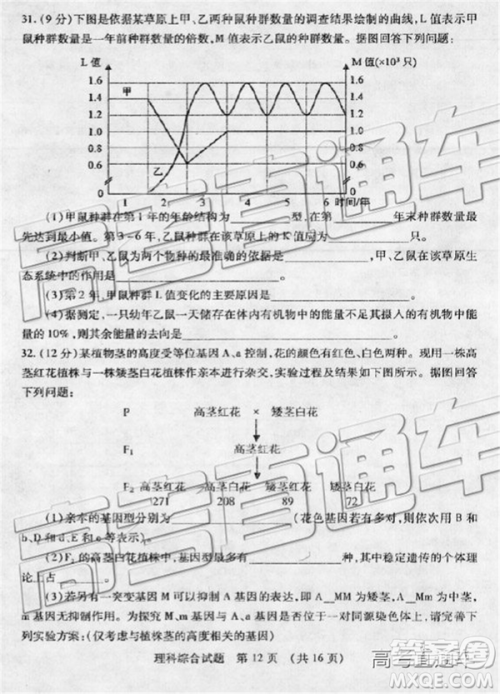 31.(9分)下图是依据某草原上甲、乙两种鼠种群数量的调查结果绘制的曲线,L值表示甲
鼠种群数量是一年前种群数量的倍数,M值表示乙鼠的种群数量。据图回答下列问题:
L值
M值(×10³只)
1.6
1.4
1.2
1.0
0.6
甲
乙
1.6
1.4
1.2
1.0
0.6
1 2 3 4 5 6 时间/年
(1)甲鼠种群在第1年的年龄结构为 型,在第 年末种群数量最
先达到最小值。第3-6年,乙鼠种群在该草原上的K值应为 。
(2)判断甲、乙鼠为两个物种的最准确的依据是 。甲、乙鼠在该草原生
态系统中的作用是 。
(3)第2年,甲鼠种群L值变化的主要原因是 。
(4)据观测,一只幼年乙鼠一天储存在体内有机物中的能量不足其摄入的有机物中能
量的10%,则其余能量的去向是 。
32.(12分)某植物茎的高度受等位基因A、a控制,花的颜色有红色、白色两种。现用一株高
茎红花植株与一株矮茎白花植株作亲本进行杂交,实验过程及结果如图所示。据图回答
下列问题:
P 高茎红花 × 矮茎白花
F₁ 高茎红花
F₂ 高茎红花 高茎白花 矮茎红花 矮茎白花
271 208 89 72
(1)亲本的基因型分别为 (花色基因若有多对,则依次用B和
b、D和d……表示)。
(2)F₂的高茎白花植株中,花色的基因型有 种,其中稳定遗传的个体理
论上占 。
(3)若另有一突变基因M可以抑制A基因的表达,即A_MM为矮茎,A_Mm为中茎,
而m基因无抑制作用。为探究M、m基因与A、a基因是否位于一对同源染色体上,请完善
实验方案:(仅考虑与植株茎的高度相关的基因)
理科综合试题 第12页 (共16页)
高考直通车
高考直通车